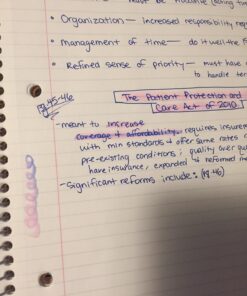 must be
• Organization — increased responsibility
• Management of time — do it well the
• Refined sense of priority — must have
to handle
The Patient Protection and
Care Act of 2010
pg 45-46
- meant to increase
coverage & affordability. requires insurers
with min standards & offer same rates
pre-existing conditions; quality over
have insurance, expanded & reformed
- Significant reforms include: (pg 46)